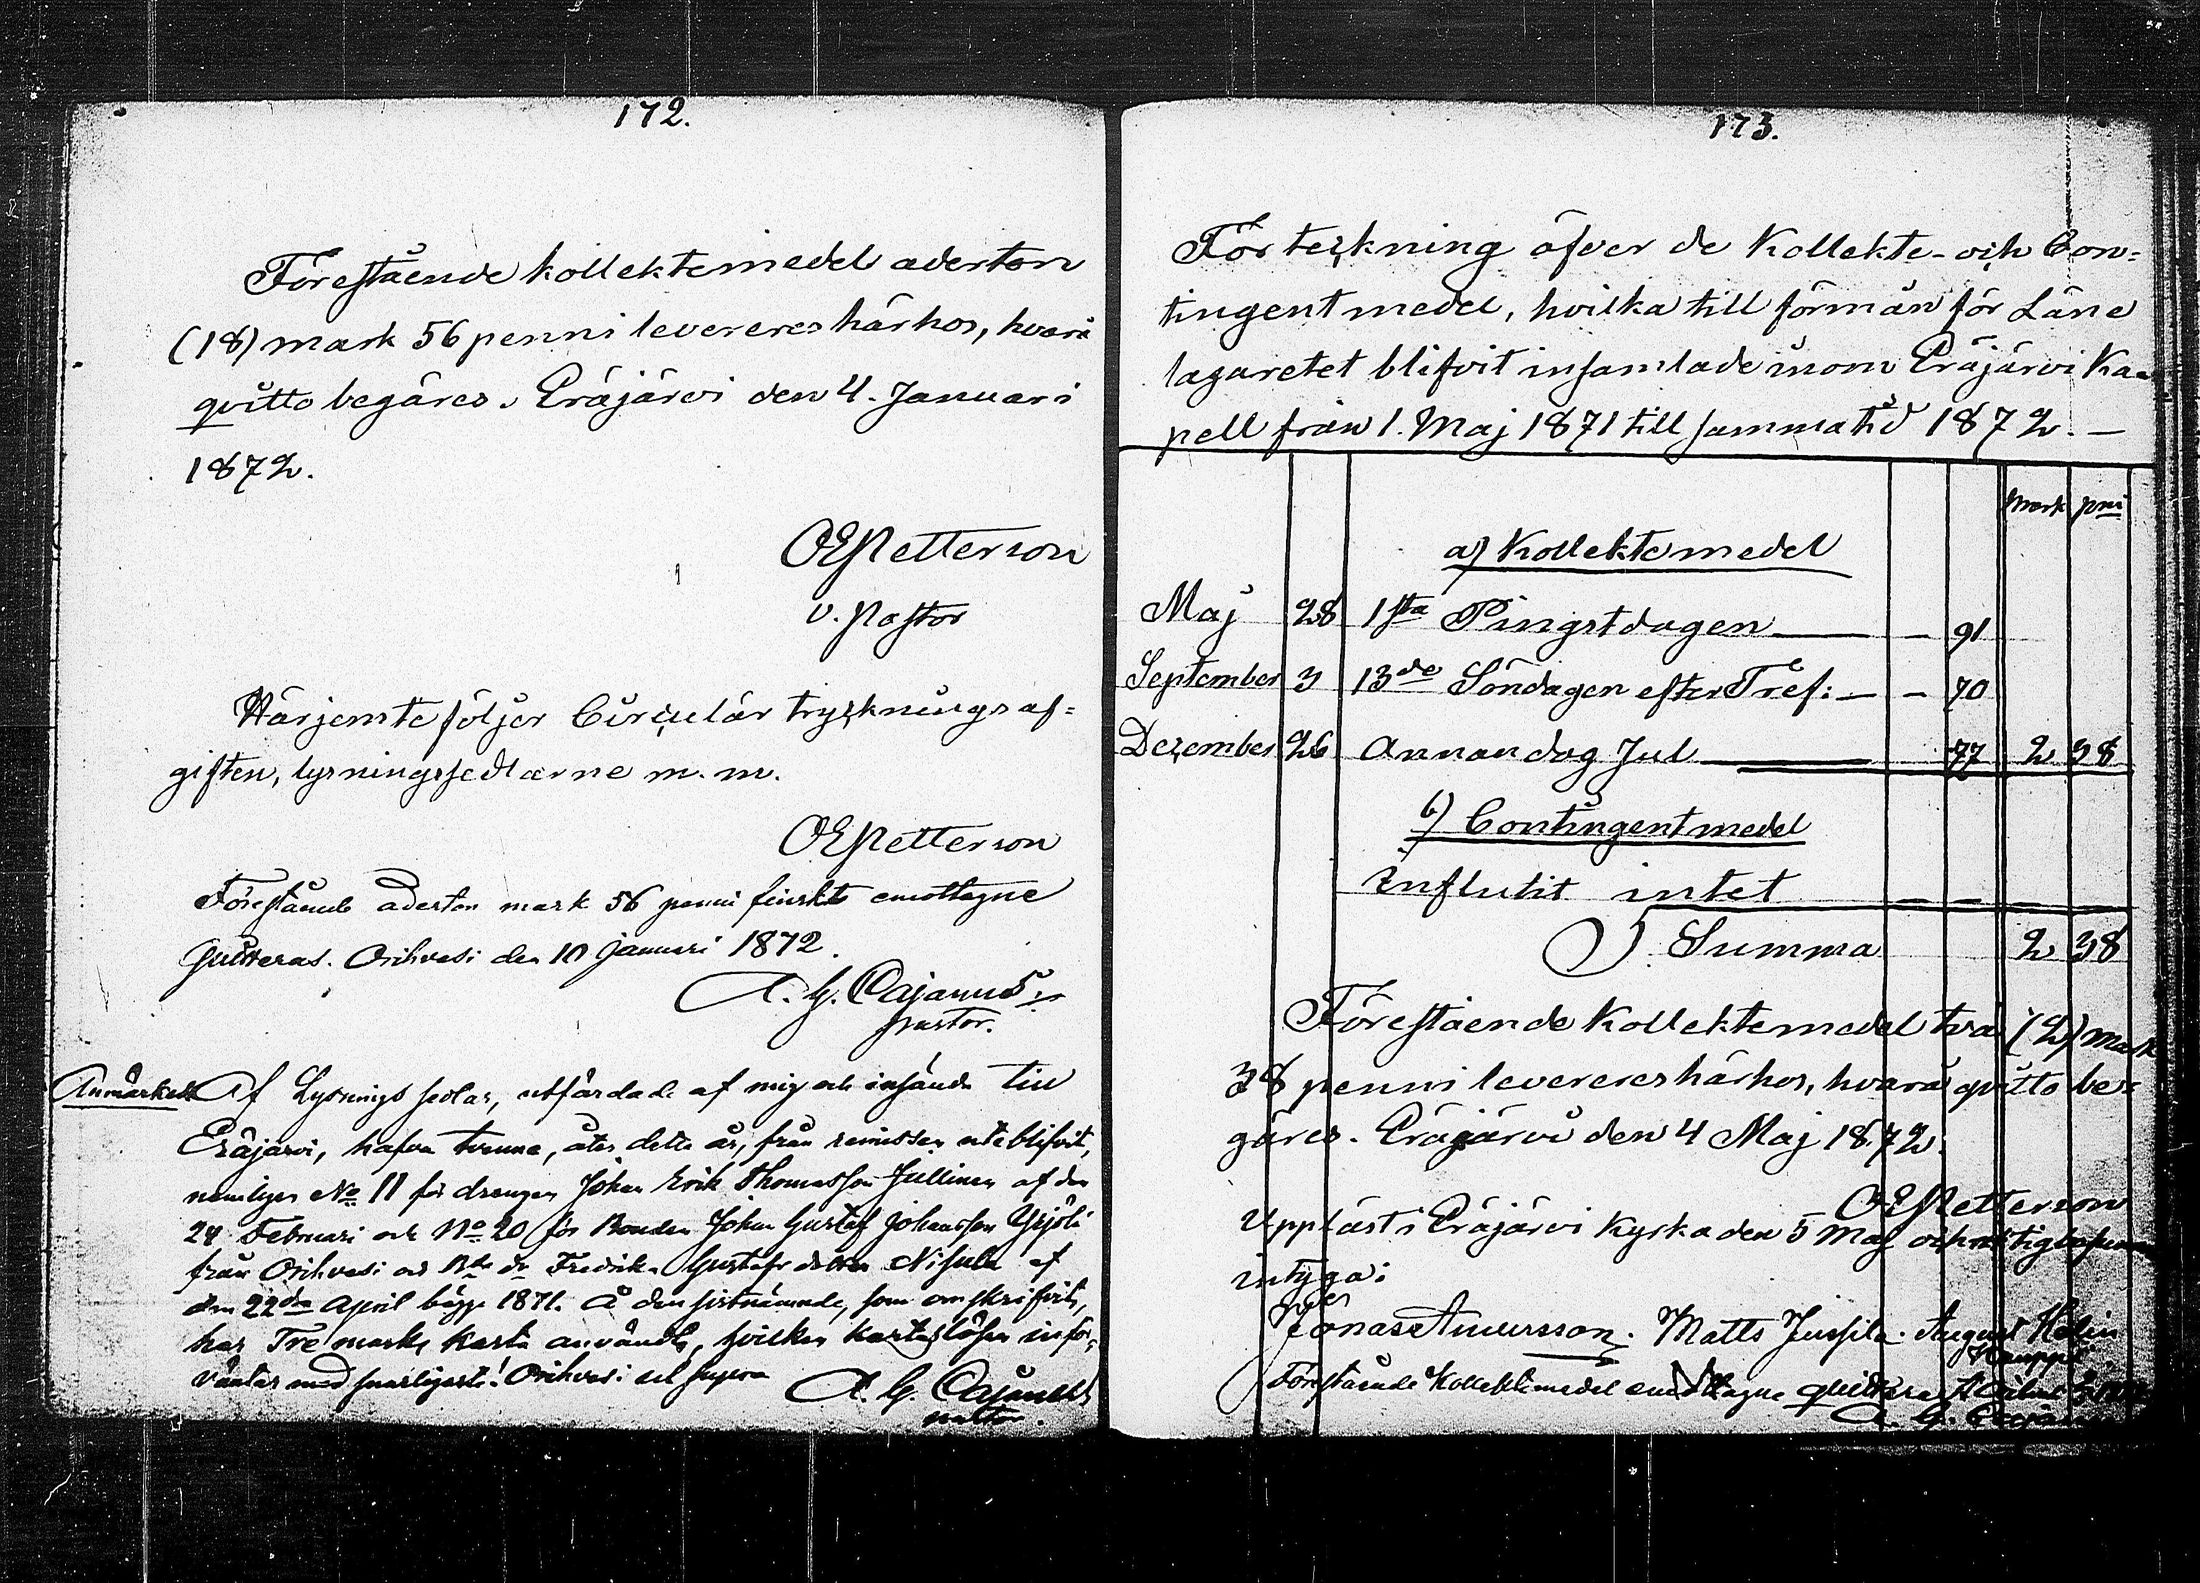 172.
Förestående kollektemedel aderton
(18) mark 56 penni levereres härhos, hvarå
qvitto begäres. Eräjärvi den 4. Januari
1872.
OEPetterson
v. Pastor
Härjemte följer Circulär tryckningsaf=
giften, lysningssedlarne m. m.
OEPetterson
Förestående aderton mark 56 penni finskt emottagne
quitteras. Orihvesi den 10 Januari 1872.
A. G. Cajanus
pastor.
Anmärkes Af Lysnings sedlar, utfärdade af mig och insända till
Eräjärvi, hafva tvenne, åter dette år, från remissen uteblifvit,
nemligen No 11 för drengen Johan Erik Thomasson Jullinen af den
24 Februari och No 20 för Bonden Johan Gustaf Johansson Yrjölä
från Orihvesi och Fredrika Gustafsdotter Nisula af
den 22dra April bägge 1871. Å den sistnämnde, som omskrifvits,
har Tre marks karta användts, hvilken karta lösen inför=
väntas med snarligaste! Orihvesi ut supra
A. G. Cajanus
pastor.
173.
Förteckning öfver de Kollekte- och Con=
tingentmedel, hvilka till förmån för Läne
lazaretet blifvit insamlade inom Eräjärvi Ka=
pell från 1. Maj 1871 till samma tid 1872. —
Mark pni
a) Kollektemedel
Maj 28 1sta Pingstdagen — — 91
September 3 13de Söndagen efter Tref: — — 70
December 26 Annandag Jul — 77 2 38
b) Contingentmedel
Influtit intet — — —
S. Summa 2 38
Förestående Kollektemedel två (2) mark
38 penni levereres härhos, hvarå qvitto be=
gäres. Eräjärvi den 4 Maj 1872.
OEPetterson
Uppläst i Eräjärvi Kyrka den 5 Maj och
intyga:
Jonas Amursson. Matts Jussila. August Helin
Kauppi
Förestående Kollektemedel emottagne quitteras
A. G. Cajanus